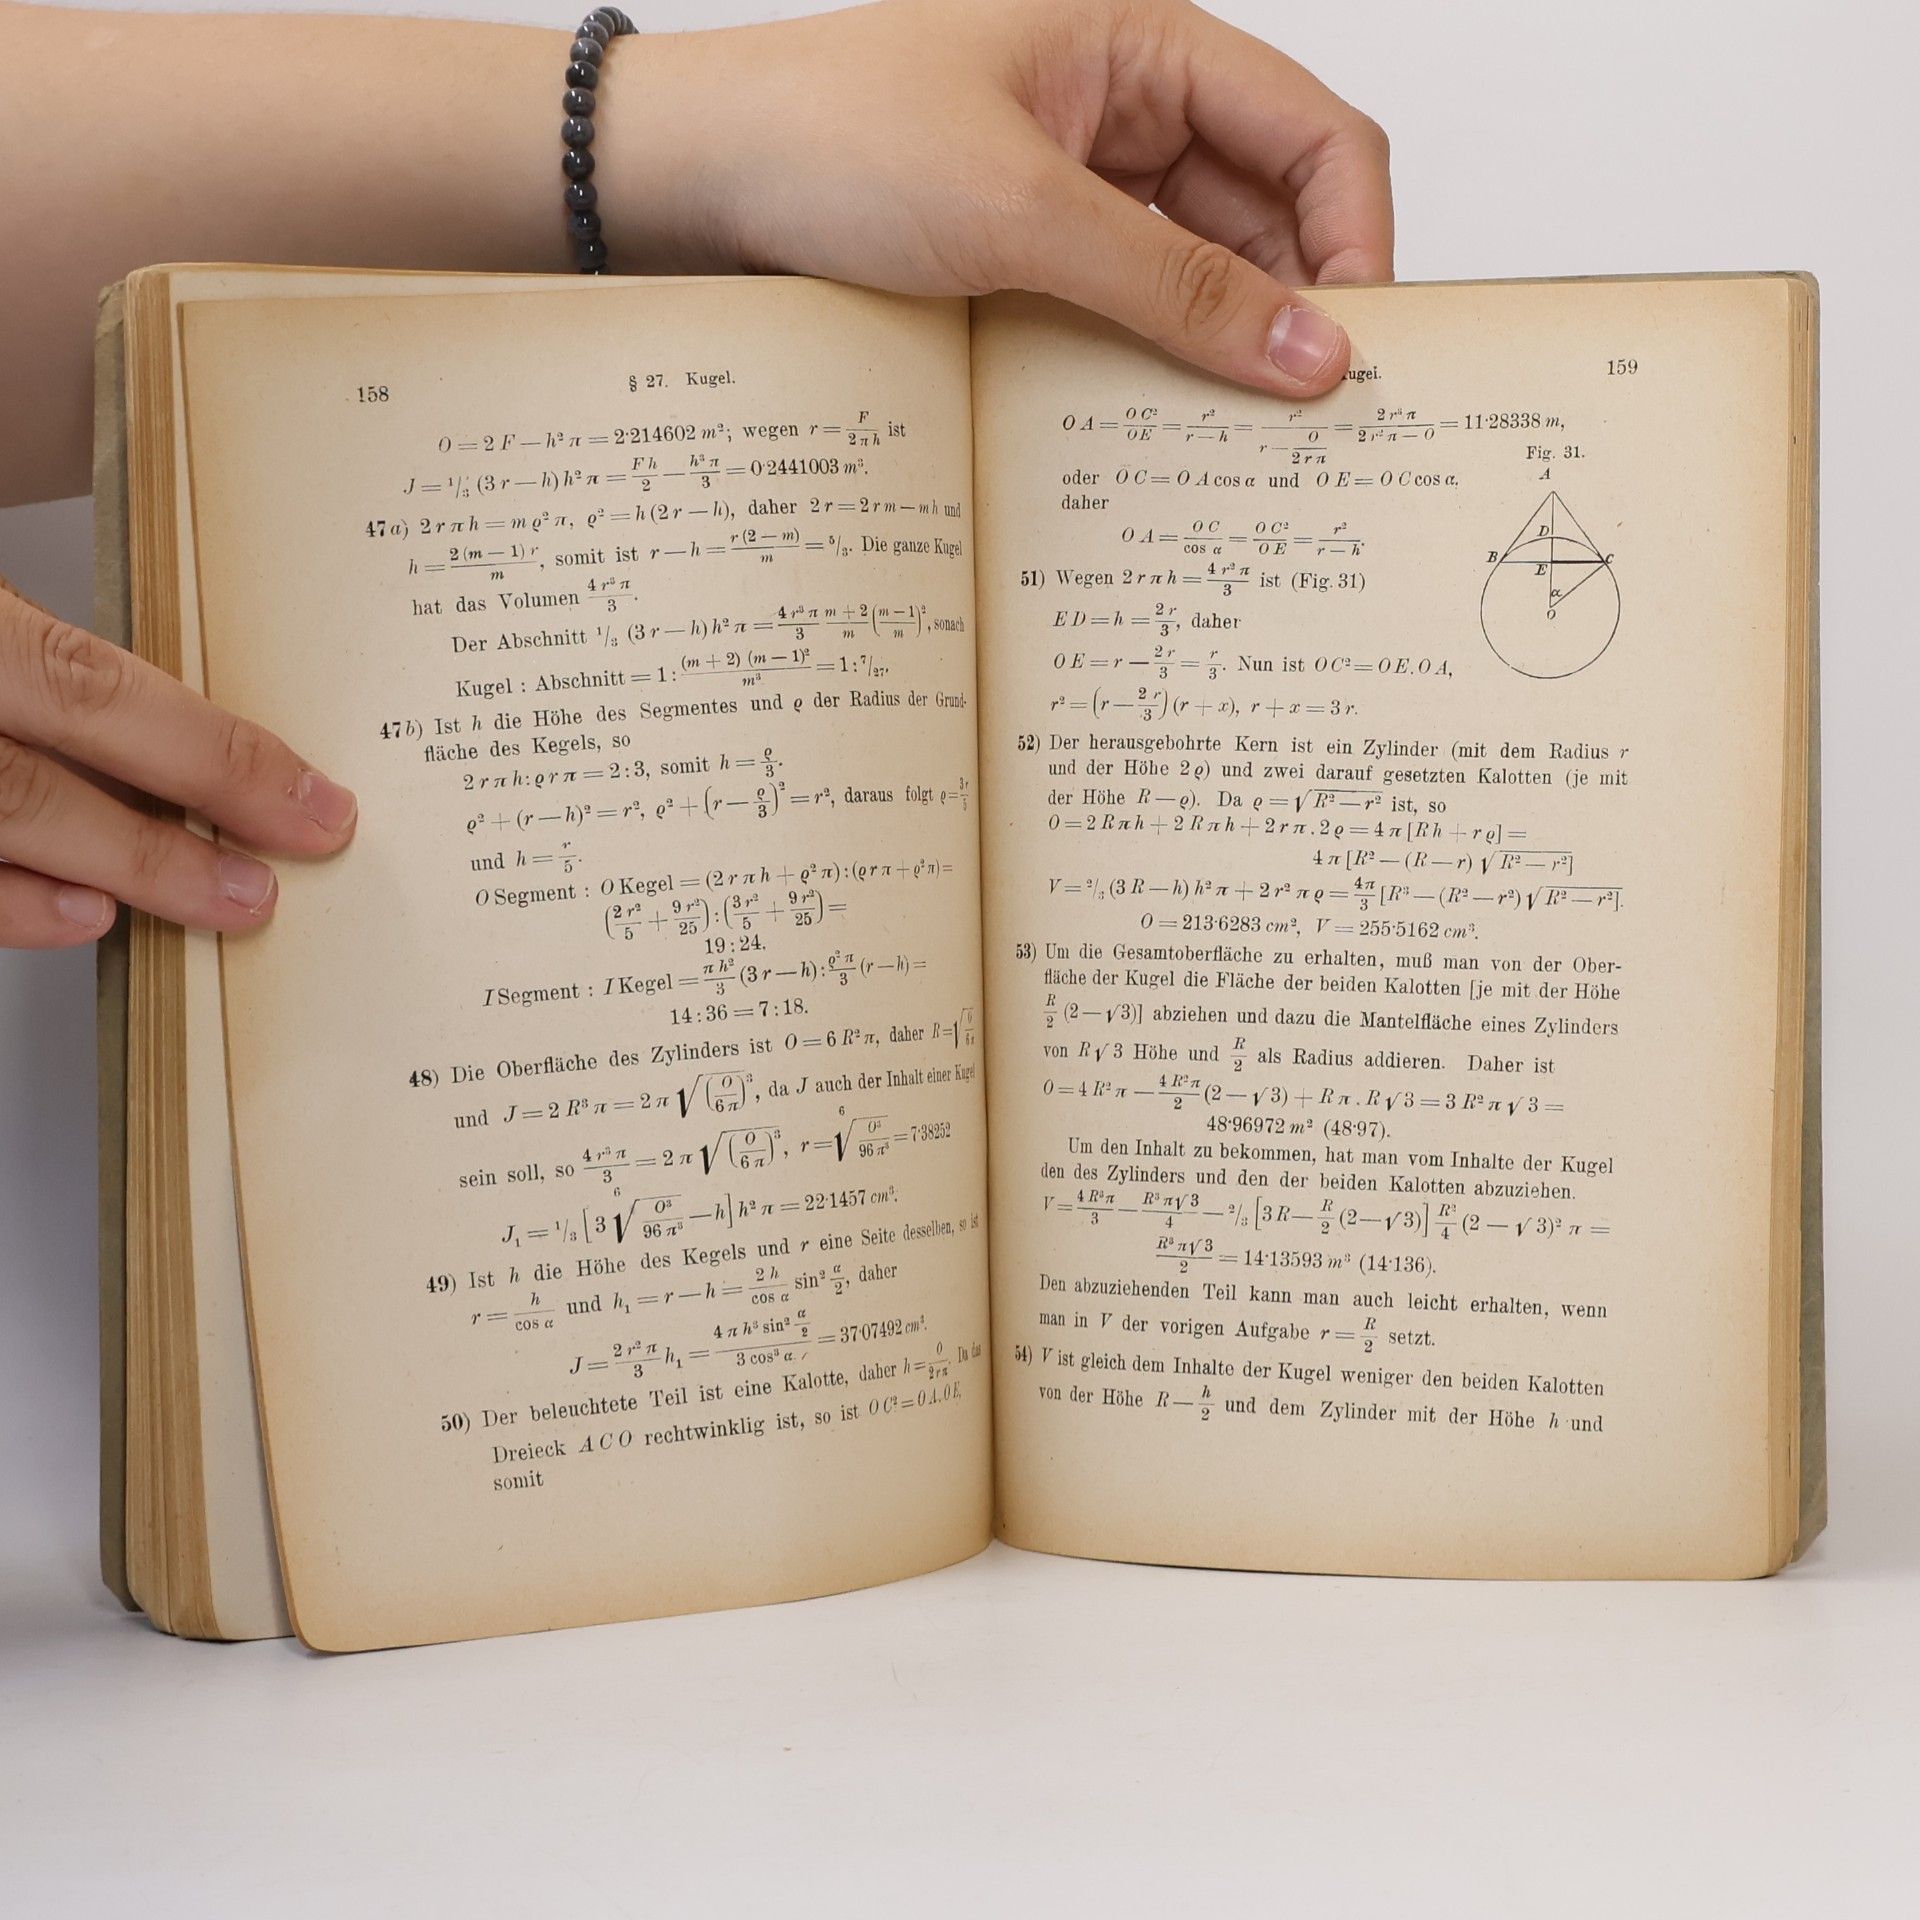 158
§ 27. Kugel.
O = 2 F — h² π = 2·214602 m²; wegen r = F/(2 π h) ist
J = ¹/₃ (3 r — h) h² π = F h/2 — h³ π/3 = 0·2441003 m³.
47 a) 2 r π h = m ϱ² π, ϱ² = h (2 r — h), daher 2 r = 2 r m — m h und
h = 2 (m — 1) r/m, somit ist r — h = r (2 — m)/m = ⁵/₃. Die ganze Kugel
hat das Volumen 4 r³ π/3.
Der Abschnitt ¹/₃ (3 r — h) h² π = 4 r³ π/3 · (m + 2)/m ((m — 1)/m)², sonach
Kugel : Abschnitt = 1 : (m + 2) (m — 1)²/m³ = 1 : ⁷/₂₇.
47 b) Ist h die Höhe des Segmentes und ϱ der Radius der Grund-
fläche des Kegels, so
2 r π h : ϱ r π = 2 : 3, somit h = ϱ/3.
ϱ² + (r — h)² = r², ϱ² + (r — ϱ/3)² = r², daraus folgt ϱ = 3r/5
und h = r/5.
O Segment : O Kegel = (2 r π h + ϱ² π) : (ϱ r π + ϱ² π) =
(2 r²/5 + 9 r²/25) : (3 r²/5 + 9 r²/25) =
19 : 24.
I Segment : I Kegel = π h²/3 (3 r — h) : ϱ² π/3 (r — h) =
14 : 36 = 7 : 18.
48) Die Oberfläche des Zylinders ist O = 6 R² π, daher R = √(O/6π)
und J = 2 R³ π = 2 π √(O/6 π)³, da J auch der Inhalt einer Kugel
sein soll, so 4 r³ π/3 = 2 π √(O/6 π)³, r = ⁶√(O³/96 π³) = 7·38252
J₁ = ¹/₃ [3 ⁶√(O³/96 π³) — h] h² π = 22·1457 cm³.
49) Ist h die Höhe des Kegels und r eine Seite desselben, so ist
r = h/cos α und h₁ = r — h = 2 h/cos α sin² α/2, daher
J = 2 r² π/3 h₁ = 4 π h³ sin² α/2 / 3 cos³ α = 37·07492 cm³.
50) Der beleuchtete Teil ist eine Kalotte, daher h = O/2rπ. Da das
Dreieck A C O rechtwinklig ist, so ist O C² = O A . O E,
somit
159
ugel.
O A = O C²/OE = r²/(r — h) = r²/(r — O/2 r π) = 2 r³ π/(2 r² π — O) = 11·28338 m,
Fig. 31.
oder O C = O A cos α und O E = O C cos α,
daher
O A = O C/cos α = O C²/O E = r²/(r — h).
A
D
B
E
C
α
O
51) Wegen 2 r π h = 4 r² π/3 ist (Fig. 31)
E D = h = 2 r/3, daher
O E = r — 2 r/3 = r/3. Nun ist O C² = O E . O A,
r² = (r — 2 r/3) (r + x), r + x = 3 r.
52) Der herausgebohrte Kern ist ein Zylinder (mit dem Radius r
und der Höhe 2 ϱ) und zwei darauf gesetzten Kalotten (je mit
der Höhe R — ϱ). Da ϱ = √(R² — r²) ist, so
O = 2 R π h + 2 R π h + 2 r π . 2 ϱ = 4 π [R h + r ϱ] =
4 π [R² — (R — r) √(R² — r²)]
V = ²/₃ (3 R — h) h² π + 2 r² π ϱ = 4π/3 [R³ — (R² — r²) √(R² — r²)].
O = 213·6283 cm², V = 255·5162 cm³.
53) Um die Gesamtoberfläche zu erhalten, muß man von der Ober-
fläche der Kugel die Fläche der beiden Kalotten [je mit der Höhe
R/2 (2 — √3)] abziehen und dazu die Mantelfläche eines Zylinders
von R √3 Höhe und R/2 als Radius addieren. Daher ist
O = 4 R² π — 4 R² π/2 (2 — √3) + R π . R √3 = 3 R² π √3 =
48·96972 m² (48·97).
Um den Inhalt zu bekommen, hat man vom Inhalte der Kugel
den des Zylinders und den der beiden Kalotten abzuziehen.
V = 4 R³ π/3 — R³ π √3/4 — ²/₃ [3 R — R/2 (2 — √3)] R²/4 (2 — √3)² π =
R³ π √3/2 = 14·13593 m³ (14·136).
Den abzuziehenden Teil kann man auch leicht erhalten, wenn
man in V der vorigen Aufgabe r = R/2 setzt.
54) V ist gleich dem Inhalte der Kugel weniger den beiden Kalotten
von der Höhe R — h/2 und dem Zylinder mit der Höhe h und